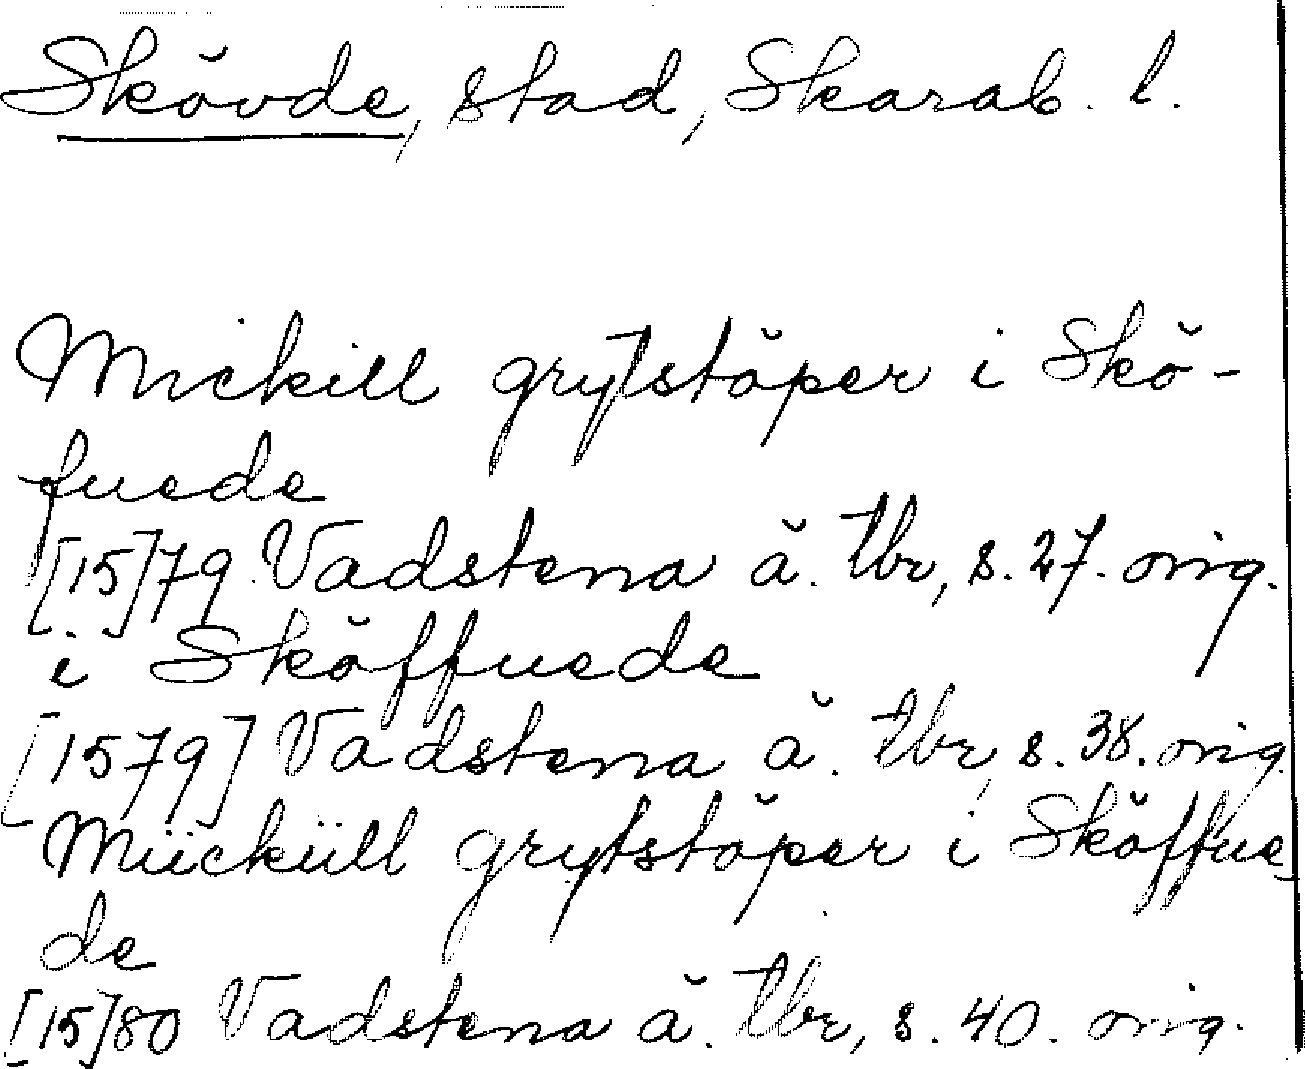 Skövde, stad, Skarab. l.
Mickill grytstöper i Skö-
fuede
[15]79 Vadstena ä. tbr, s. 27. orig.
i Sköffuede
[1579] Vadstena ä. tbr, s. 38. orig.
Mückküll grytstöper i Sköffue
de
[15]80 Vadstena ä. tbr, s. 40. orig.